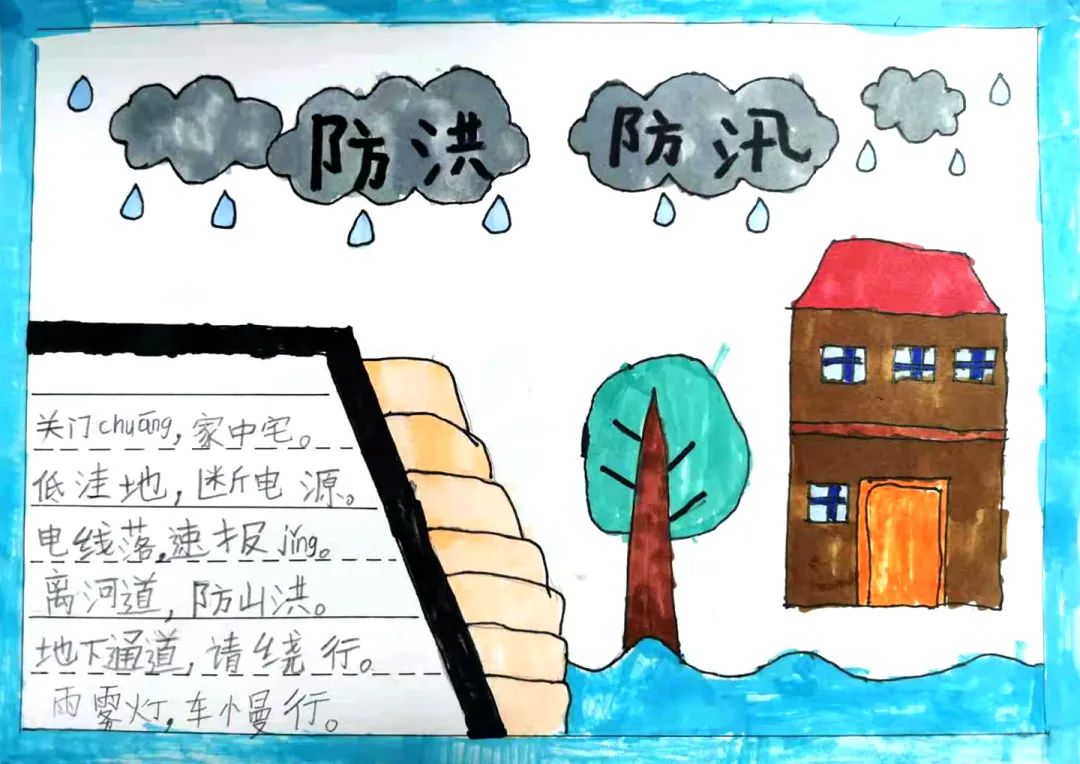 防洪 防汛
关门chuāng,家中宅。
低洼地,断电源。
电线落,速报jǐng。
离河道,防山洪。
地下通道,请绕行。
雨雾灯,车慢行。